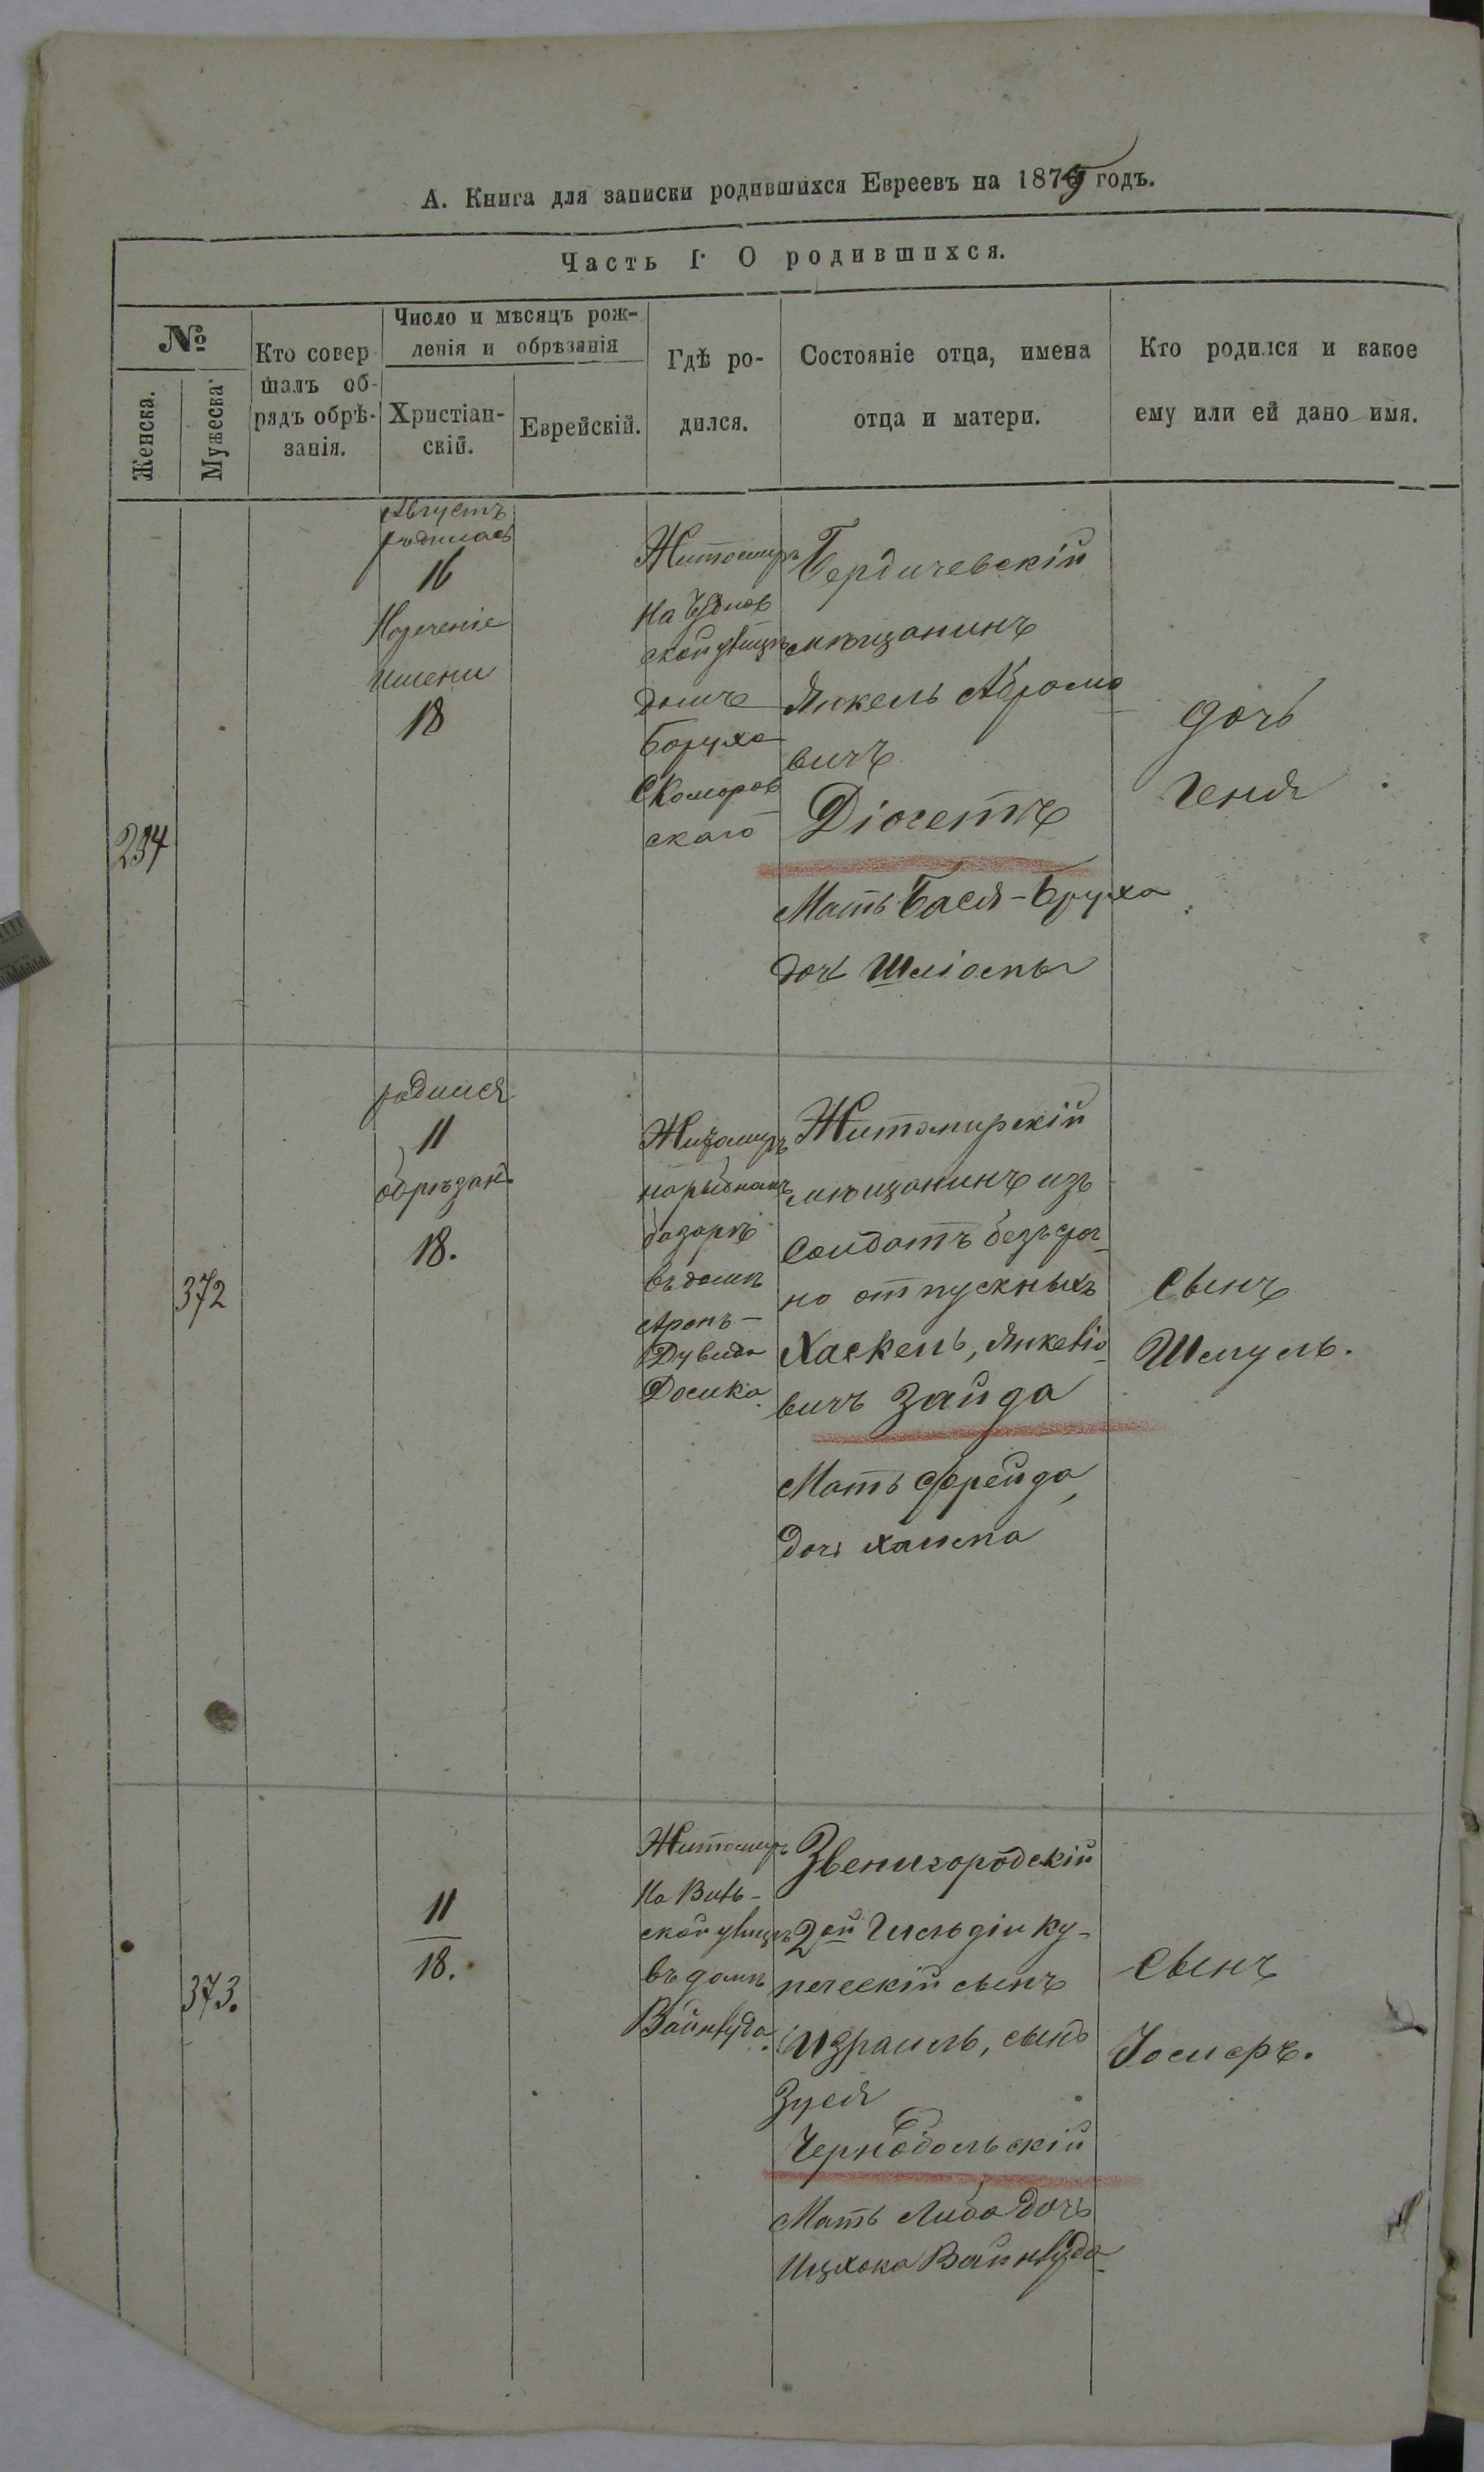 А. Книга для записки родившихся Евреевъ на 1875 годъ.
Часть I. О родившихся.
№
Женска.
Мужеска
Кто совер
шалъ об-
рядъ обрѣ-
занія.
Число и мѣсяцъ рож-
денія и обрѣзанія
Христіан-
скій.
Еврейскій.
Гдѣ ро-
дился.
Состояніе отца, имена
отца и матери.
Кто родился и какое
ему или ей дано имя.
234
Августъ
родилась
16
Нареченіе
имени
18
Житомиръ
на Чуднов
ской улицѣ
домѣ
Боруха
Скоморов
скаго
Бердичевскій
мѣщанинъ
Янкель Абрамо
вичъ
Діогетъ
Мать Бася-Бруха
дочь
дочь
Геня
372
родился
11
обрѣзанъ
18.
Житомиръ
на рыбномъ
базарѣ
въ домѣ
Аронъ-
Дувида
Досика
Житомирскій
мѣщанинъ изъ
солдатъ безсроч-
но отпускныхъ
Хаскель, Янкеліо-
вичъ Зайда
Мать Фрейда,
дочь Хаима
сынъ
Шмуль.
373.
11
18.
Житомиръ
на Виль-
ской улицѣ
въ домѣ
Вайнблуда.
Звенигородскій
2ой Гильдіи ку-
печескій сынъ
Израиль, сынъ
Зуся
Чернобольскій
Мать Либа дочь
Ицхока Вайнблуда
сынъ
Іосифъ.